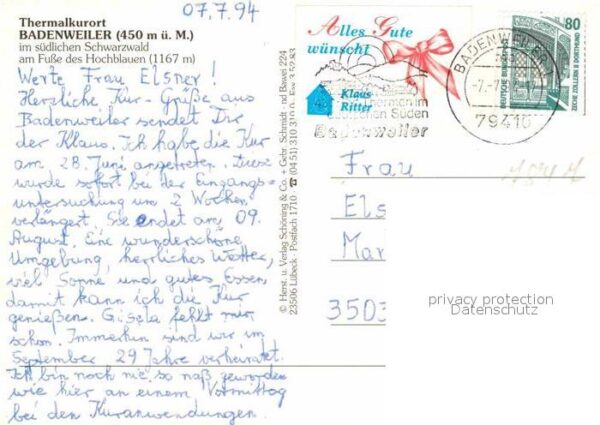 07.7.94
Thermalkurort
BADENWEILER (450 m ü. M.)
im südlichen Schwarzwald
am Fuße des Hochblauen (1167 m)
Werte Frau Elsner!
Herzliche Kur-Grüße aus
Badenweiler sendet Dir
der Klaus. Ich habe die Kur
am 28. Juni angetreten. Diese
wurde sofort bei der Eingangs-
untersuchung um 2 Wochen
verlängert. Sie endet am 09.
August. Eine wunderschöne
Umgebung, herrliches Wetter,
viel Sonne und gutes Essen
damit kann ich die Kur
genießen. Gisela fehlt mir
schon. Immerhin sind wir im
September 29 Jahre verheiratet.
Ich bin noch nie so naß geworden
wie hier an einem Vormittag
bei den Kuranwendungen.
© Herst. u. Verlag Schöning & Co. + Gebr. Schmidt · und Bawei 224
23506 Lübeck · Postfach 1710 ☎ (04 51) 310 310 Fax 3 52 83
Alles Gute
wünscht
Klaus
Ritter
im
Süden
Badenweiler
BADENWEILER
79410
80
DEUTSCHE BUNDESPOST
ZECHE ZOLLERN II DORTMUND
Frau
Els
Mar
3503
privacy protection
Datenschutz